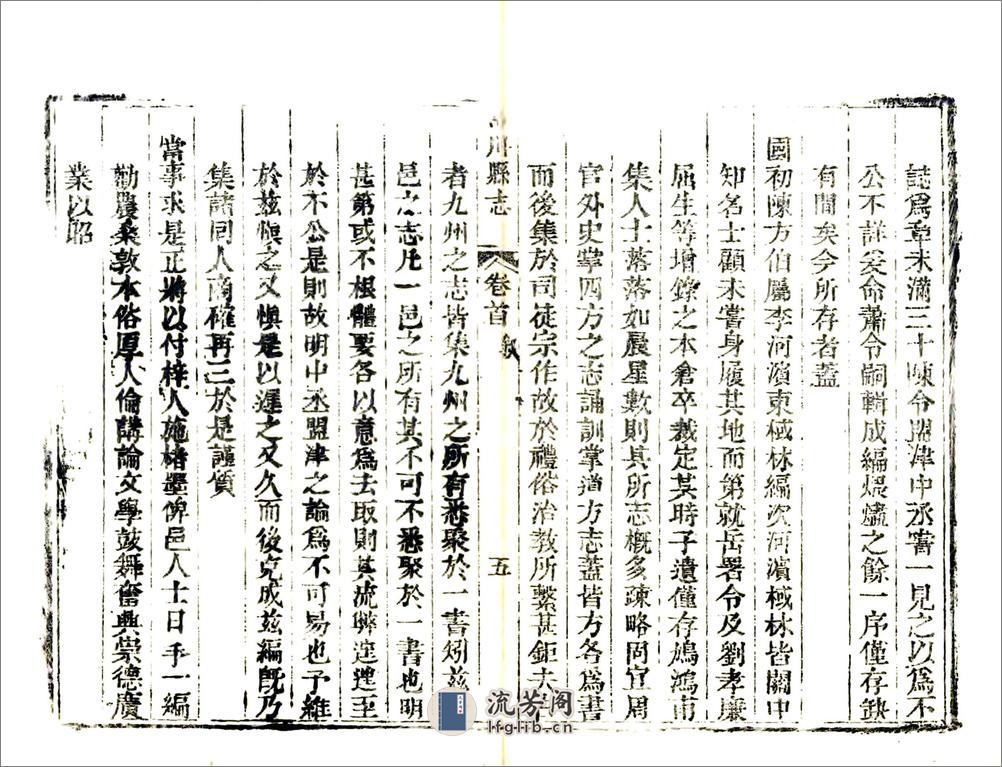 誌爲章未滿三十陳令盟津中丞嘗一見之以爲不
公不詳爰命蕭令嗣輯成編煨燼之餘一序僅存缺
有間矣今所存者蓋
國初陳方伯屬李河濱東棫林編次河濱棫林皆關中
知名士顧未嘗身履其地而第就岳署令及劉孝廉
屈生等增錄之本倉卒裁定其時孑遺僅存鴻鴻甫
集人士落落如晨星數則其所志概多疎略固宜周
官外史掌四方之志誦訓掌道方志蓋皆方各爲書
而後集於司徒宗作故於禮俗治教所繫甚鉅夫
川縣志
卷首
敘
五
者九州之志皆集九州之所有悉聚於一書矧茲
邑之志凡一邑之所有其不可不悉聚於一書也明
甚第或不根體要各以意爲去取則其流弊遂運至
於不公是則故明中丞盟津之論爲不可易也予維
於茲慎之又慎是以遲之又久而後克成茲編旣乃
集諸同人商確再三於是謹質
當事求是正將以付梓人施楮墨俾邑人士日手一編
勸農桑敦本俗厚人倫講論文學鼓舞奮興崇德廣
業以昭
流芳阁
lfglib.cn